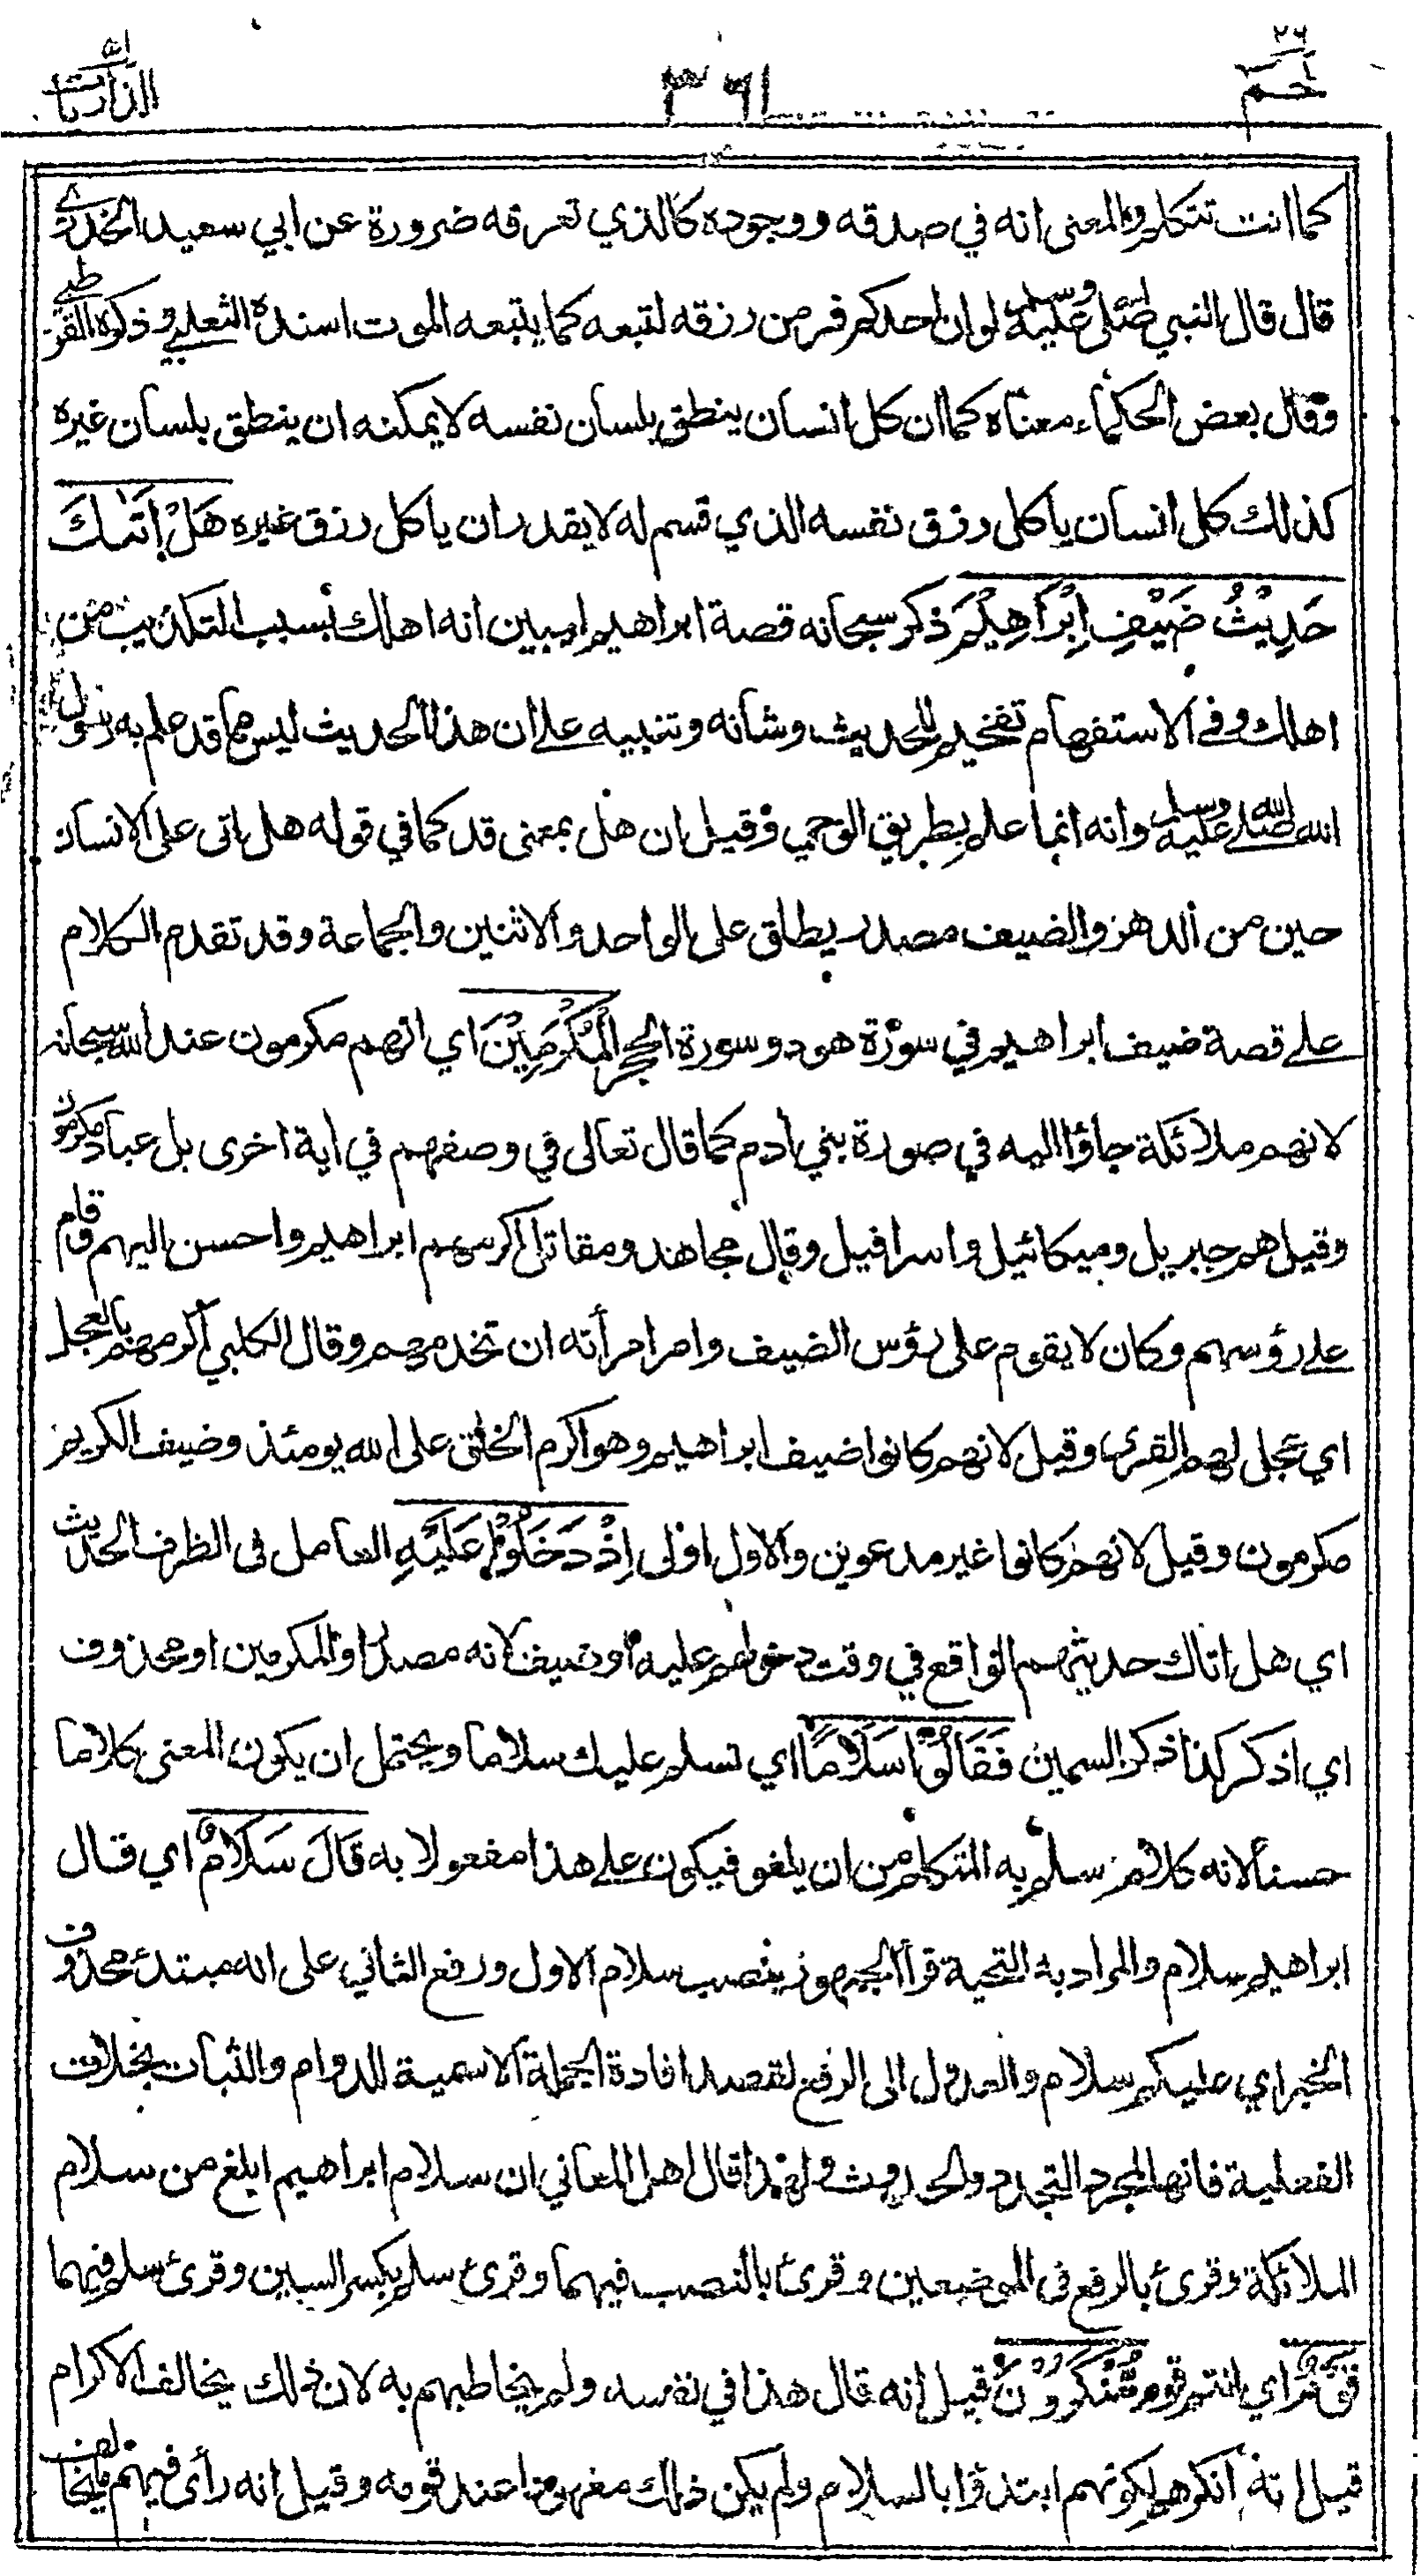 حم ٢٦
٣٦١
الذاريات ٥١
كما انت تتكلم والمعنى انه في صدقه ووجوده كالذي تعرفه ضرورة عن ابي سعيد الخدري
قال قال النبي صلى الله عليه وسلم لو ان احدكم فر من رزقه لتبعه كما يتبعه الموت اسنده الثعلبي وذكره القرطبي
وقال بعض الحكماء معناه كما ان كل انسان ينطق بلسان نفسه لا يمكنه ان ينطق بلسان غيره
كذلك كل انسان ياكل رزق نفسه الذي قسم له لا يقدر ان ياكل رزق غيره هَلْ اَتٰىكَ
حَدِيْثُ ضَيْفِ اِبْرَاهِيْمَ ذكر سبحانه قصة ابراهيم ليبين انه اهلك بسبب التكذيب من
اهلك وفي الاستفهام تفخيم للحديث وشانه وتنبيه على ان هذا الحديث ليس مما قد علم به رسول
الله صلى الله عليه وسلم وانه انما علم بطريق الوحي وقيل ان هل بمعنى قد كما في قوله هل اتى على الانسان
حين من الدهر والضيف مصدر يطلق على الواحد والاثنين والجماعة وقد تقدم الكلام
على قصة ضيف ابراهيم في سورة هود وسورة الحجر الْمُكْرَمِيْنَ اي انهم مكرمون عند الله سبحانه
لانهم ملائكة جاؤا اليه في صورة بني ادم كما قال تعالى في وصفهم في اية اخرى بل عباد مكرمون
وقيل هم جبريل وميكائيل واسرافيل وقال مجاهد ومقاتل اكرمهم ابراهيم واحسن اليهم وقام
على رؤسهم وكان لا يقوم على رؤس الضيف وامر امرأته ان تخدمهم وقال الكلبي اكرمهم بالعجل
اي عجل لهم القرى وقيل لانهم كانوا ضيف ابراهيم وهو اكرم الخلق على الله يومئذ وضيف الكريم
مكرمون وقيل لانهم كانوا غير مدعوين والاول اولى اِذْ دَخَلُوْا عَلَيْهِ العامل في الظرف الحديث
اي هل اتاك حديثهم الواقع في وقت دخولهم عليه او ضيف لانه مصدر او المكرمين او محذوف
اي اذكر كذا ذكر السمين فَقَالُوْا سَلَامًا اي نسلم عليك سلاما ويحتمل ان يكون المعنى كلاما
حسنا لانه كلام سلم به المتكلم من ان يلغو فيكون على هذا مفعولا به قَالَ سَلَامٌ اي قال
ابراهيم سلام والمراد به التحية قرأ الجمهور بنصب سلام الاول ورفع الثاني على انه مبتدء محذوف
الخبر اي عليكم سلام والعدول الى الرفع لقصد افادة الجملة الاسمية للدوام والثبات بخلاف
الفعلية فانها لمجرد التجدد والحدوث ولهذا قال اهل المعاني ان سلام ابراهيم ابلغ من سلام
الملائكة وقرئ بالرفع في الموضعين وقرئ بالنصب فيهما وقرئ سلم بكسر السين وقرئ سلم فيهما
قَوْمٌ اي انتم قوم مُّنْكَرُوْنَ قيل انه قال هذا في نفسه ولم يخاطبهم به لان ذلك يخالف الاكرام
قيل انه انكرهم لكونهم ابتدؤا بالسلام ولم يكن ذلك معهودا عند قومه وقيل انه رأى فيهم ما يخالف